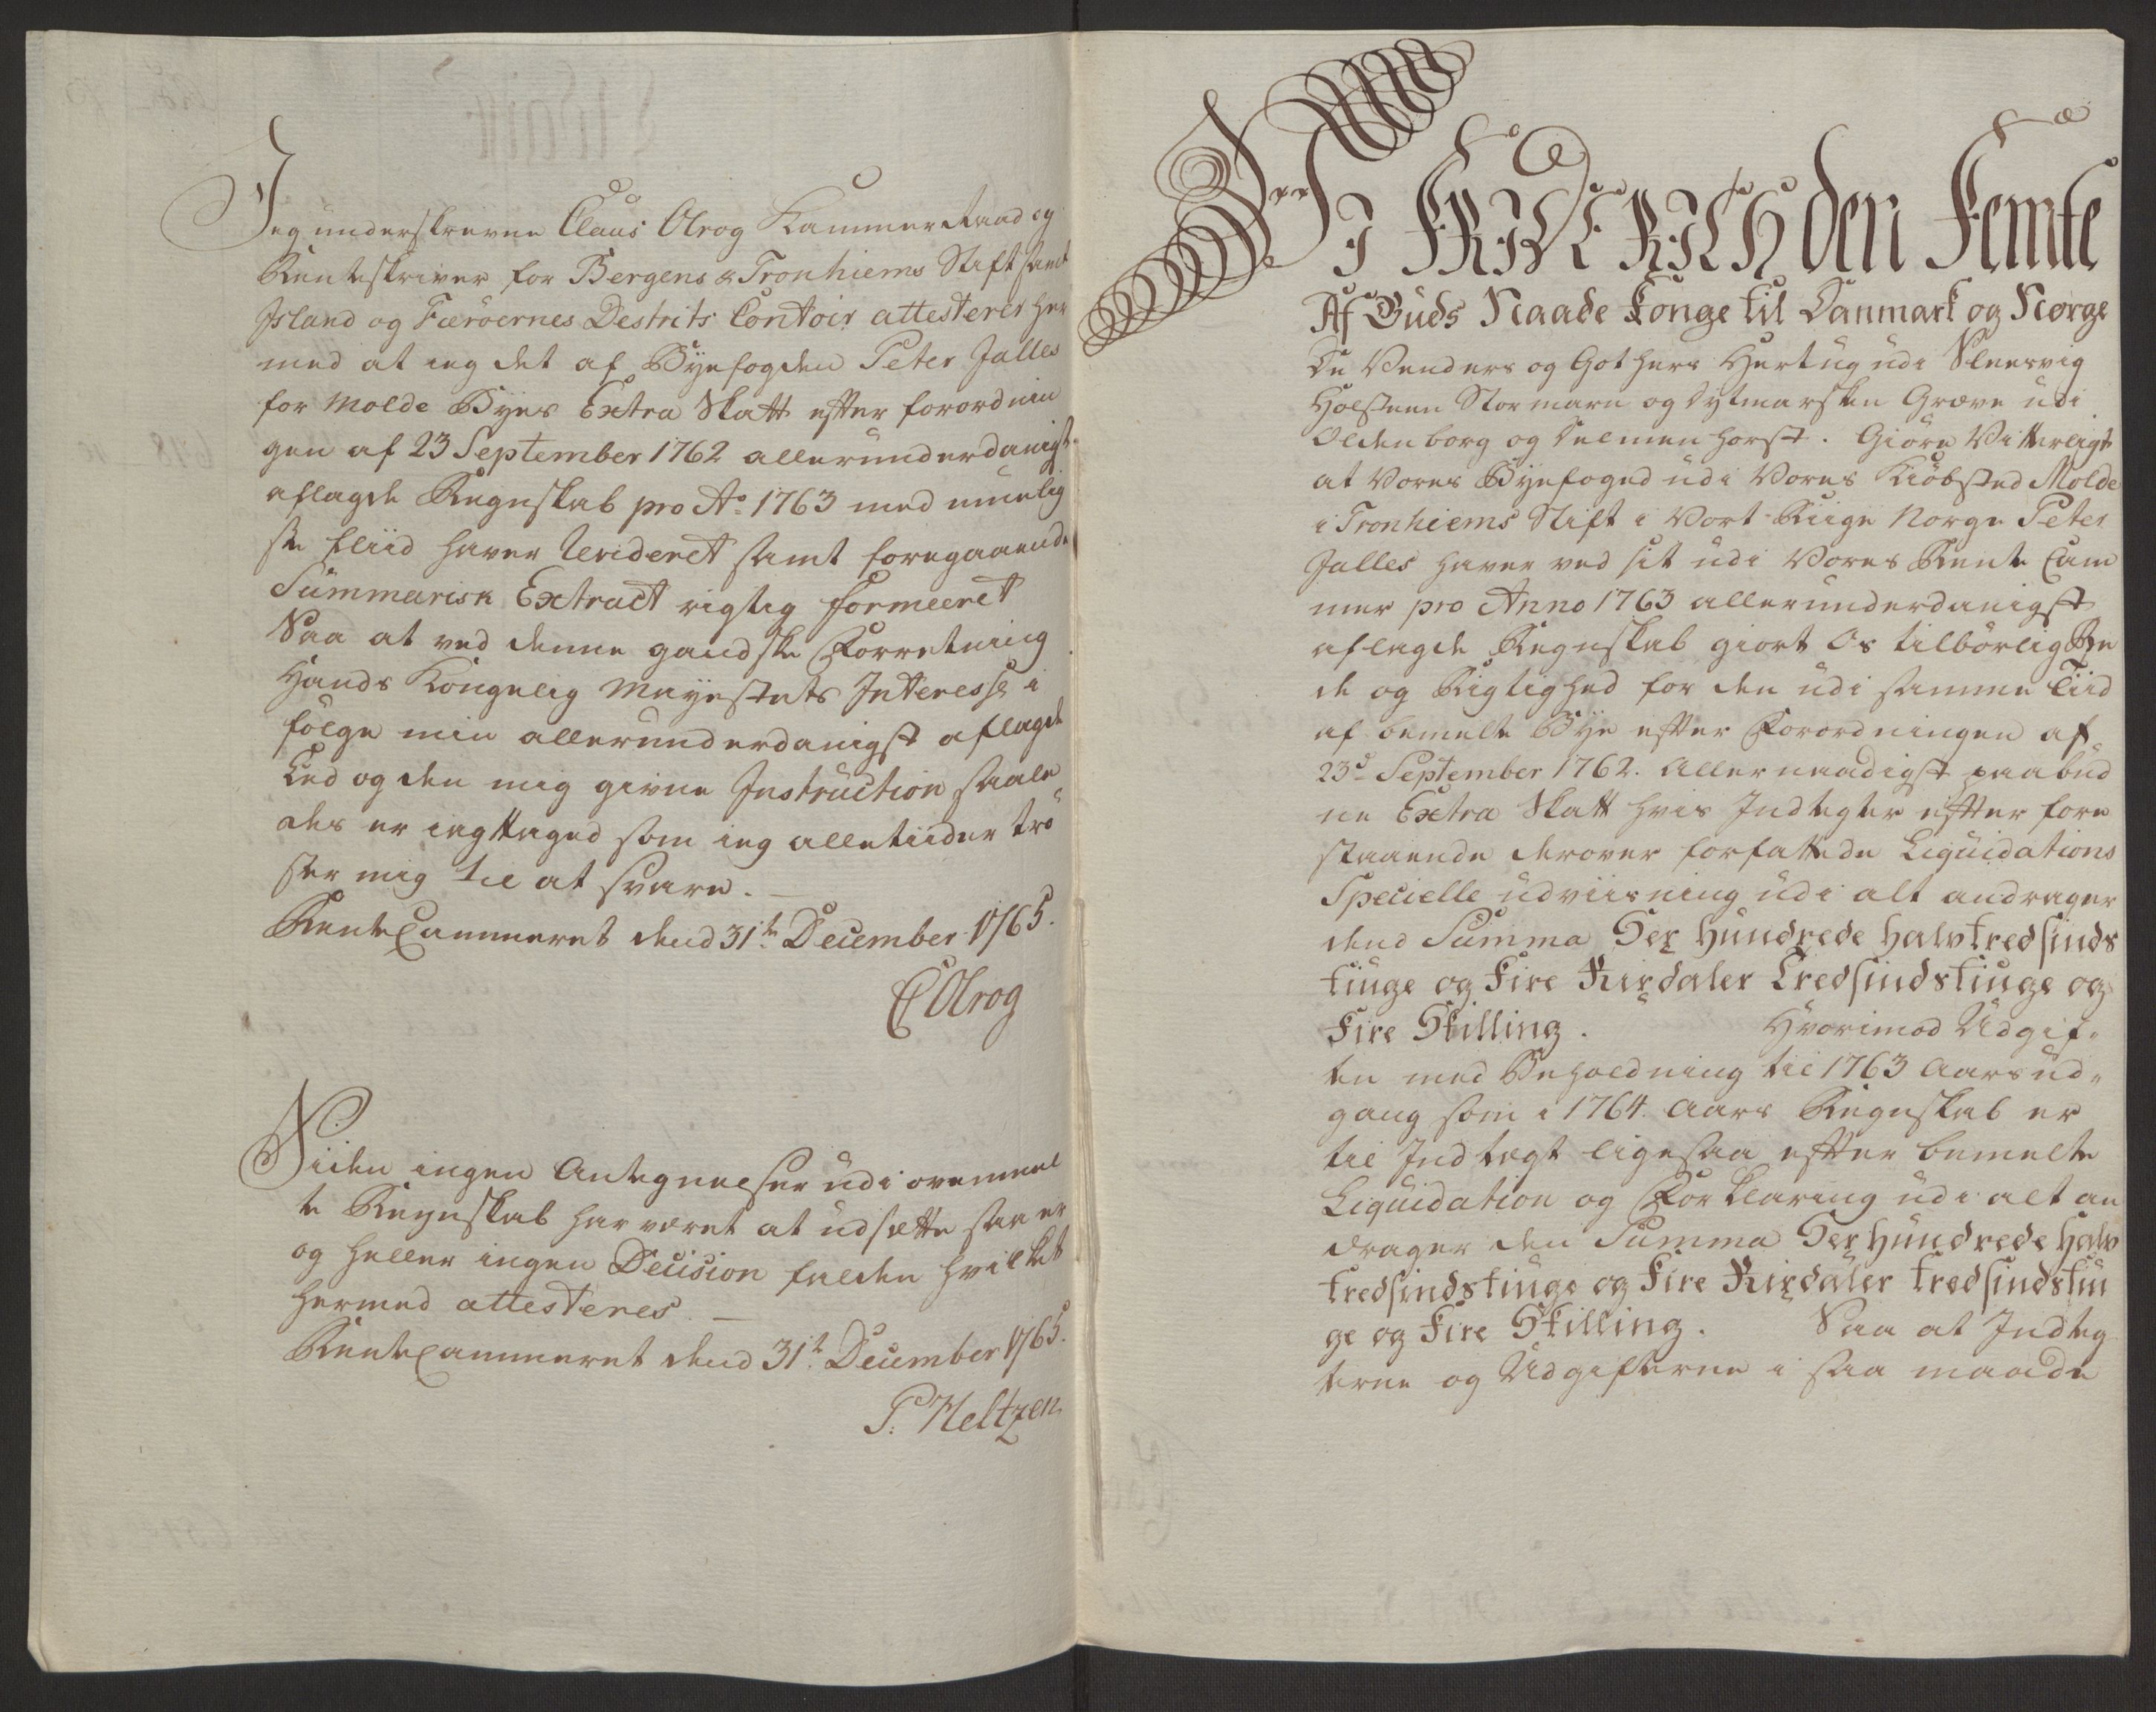 Jeg underskrevne Claus Olrog Kammer Raad og
Renteskriver for Bergens & Tronhiems Stift samt
Island og Færöernes Destrits Contoir attesterer her
med at ieg det af Byefogden Peter Jalles
for Molde Byes Extra Skatt efter forordnin
gen af 23 September 1762 allerunderdanigst
aflagde Regnskab pro Ao. 1763 med muelig
ste fliid haver Revideret samt foregaaende
Summarisk Extract rigtig formeeret
Saa at ved denne gandske Forretning
Hands Kongelig Mayestets Interesse i
fölge min allerunderdanigst aflagde
Eed og den mig givne Instruction saale
des er iagttaged som ieg alletiider trö
ster mig til at svare.
RenteCammeret dend 31te December 1765.
C Olrog
Siiden ingen Antegnelser udi ovenmel
te Regnskab har været at udsætte saa er
og heller ingen Decision falden hvilket
hermed attesteres.
RenteCammeret dend 31te December 1765.
P. Meltzen
Wi FRIDERICH den Femte
Af Guds Naade Konge til Danmark og Norge
De Venders og Gothers Hertug udi Sleesvig
Holsteen Stormarn og Dytmarsken Græve udi
Oldenborg og Delmenhorst. Giöre Vitterligt
at Vores Byefoged udi Vores Kiöbsted Molde
i Tronhiems Stift i Vort Riige Norge Peter
Jalles haver ved sit udi Vores Rente Cam
mer pro Anno 1763 allerunderdanigst
aflegde Regnskab giort Os tilbörlig Re
de og Rigtighed for den udi samme Tiid
af bemelte Bye efter Forordningen af
23d September 1762. Allernaadigst paabud
ne Extra Skatt hvis Indtegter efter fore
staaende derover forfattede Liquidations
Specielle udviisning udi alt andrager
dend Summa Sex Hundrede halvtredsinds
tiuge og Fire Rixdaler Tredsindstiuge og
Fire Skilling. Hvorimod Udgif-
ten med Beholdning til 1763 Aars ud-
gang som i 1764. Aars Regnskab er
til Indtægt ligesaa efter bemelte
Liquidation og Forklaring udi alt an
drager den Summa Sex Hundrede Halv
tredsindstiuge og Fire Rixdaler tredsindstiu
ge og Fire Skilling. Saa at Indteg
terne og Udgifterne i saa maade